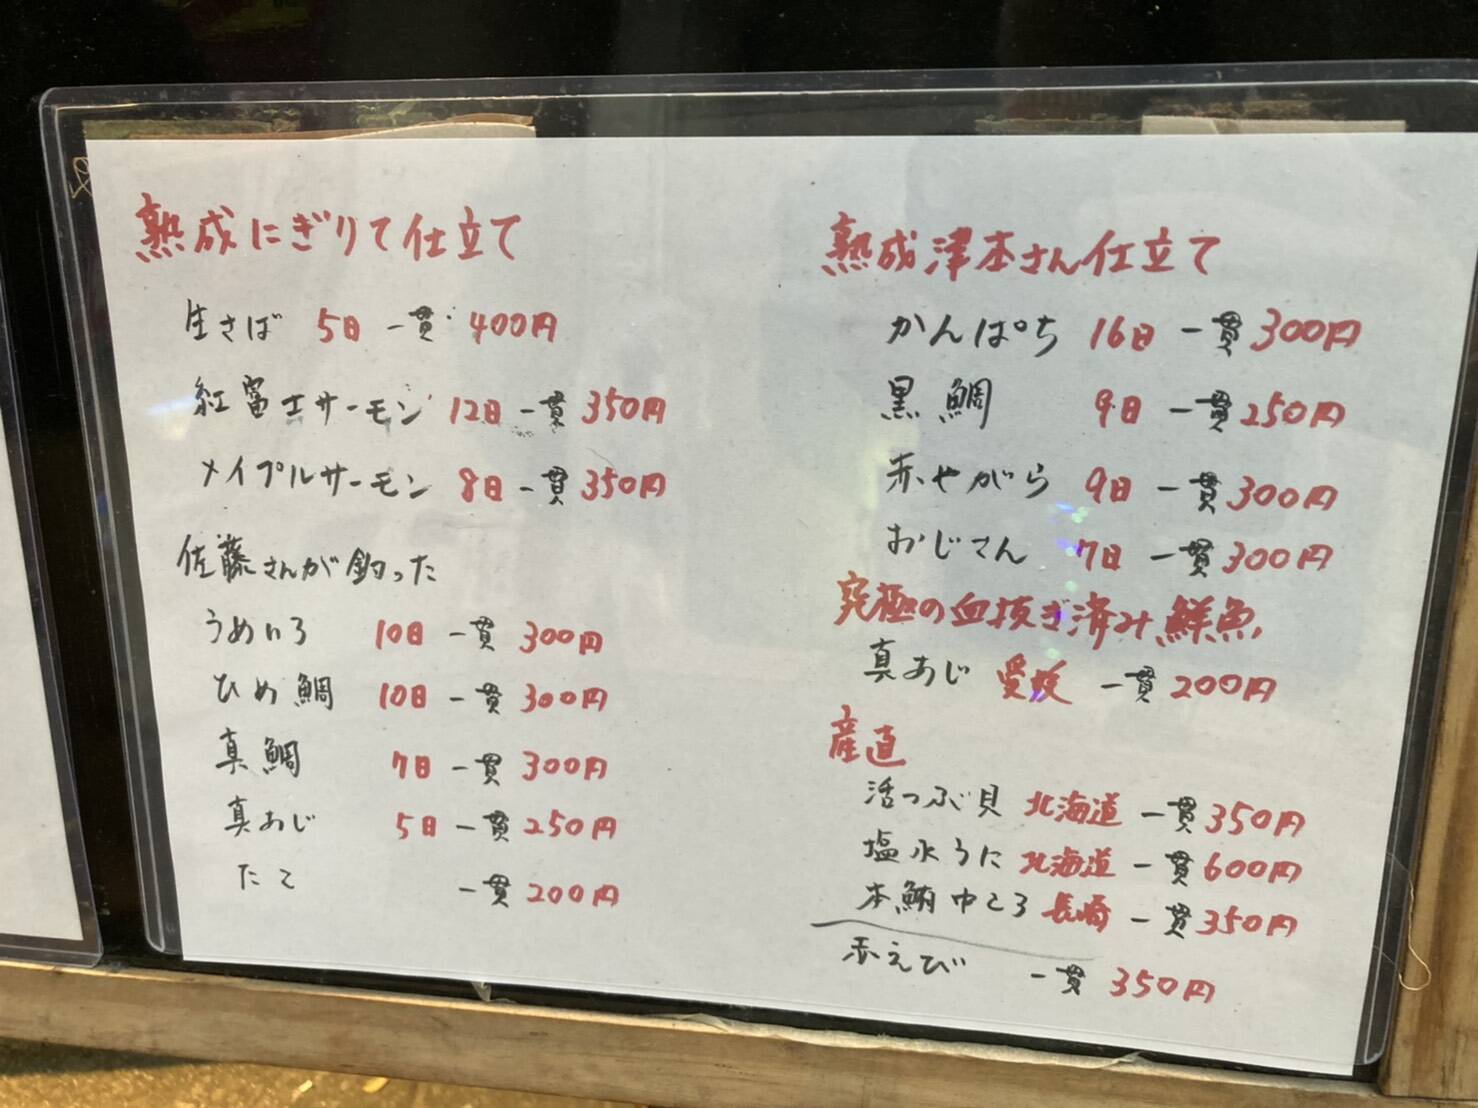 熟成にぎりて仕立て
生さば 5日 一貫 400円
紅富士サーモン 12日 一貫 350円
メイプルサーモン 8日 一貫 350円
佐藤さんが釣った
うめいろ 10日 一貫 300円
ひめ鯛 10日 一貫 300円
真鯛 7日 一貫 300円
真あじ 5日 一貫 250円
たこ 一貫 200円
熟成津本さん仕立て
かんぱち 16日 一貫 300円
黒鯛 9日 一貫 250円
赤やがら 9日 一貫 300円
おじさん 7日 一貫 300円
究極の血抜き済み鮮魚
真あじ 一貫 200円
産直
活つぶ貝 北海道 一貫 350円
塩水うに 北海道 一貫 600円
本鮪中とろ 長崎 一貫 350円
赤えび 一貫 350円